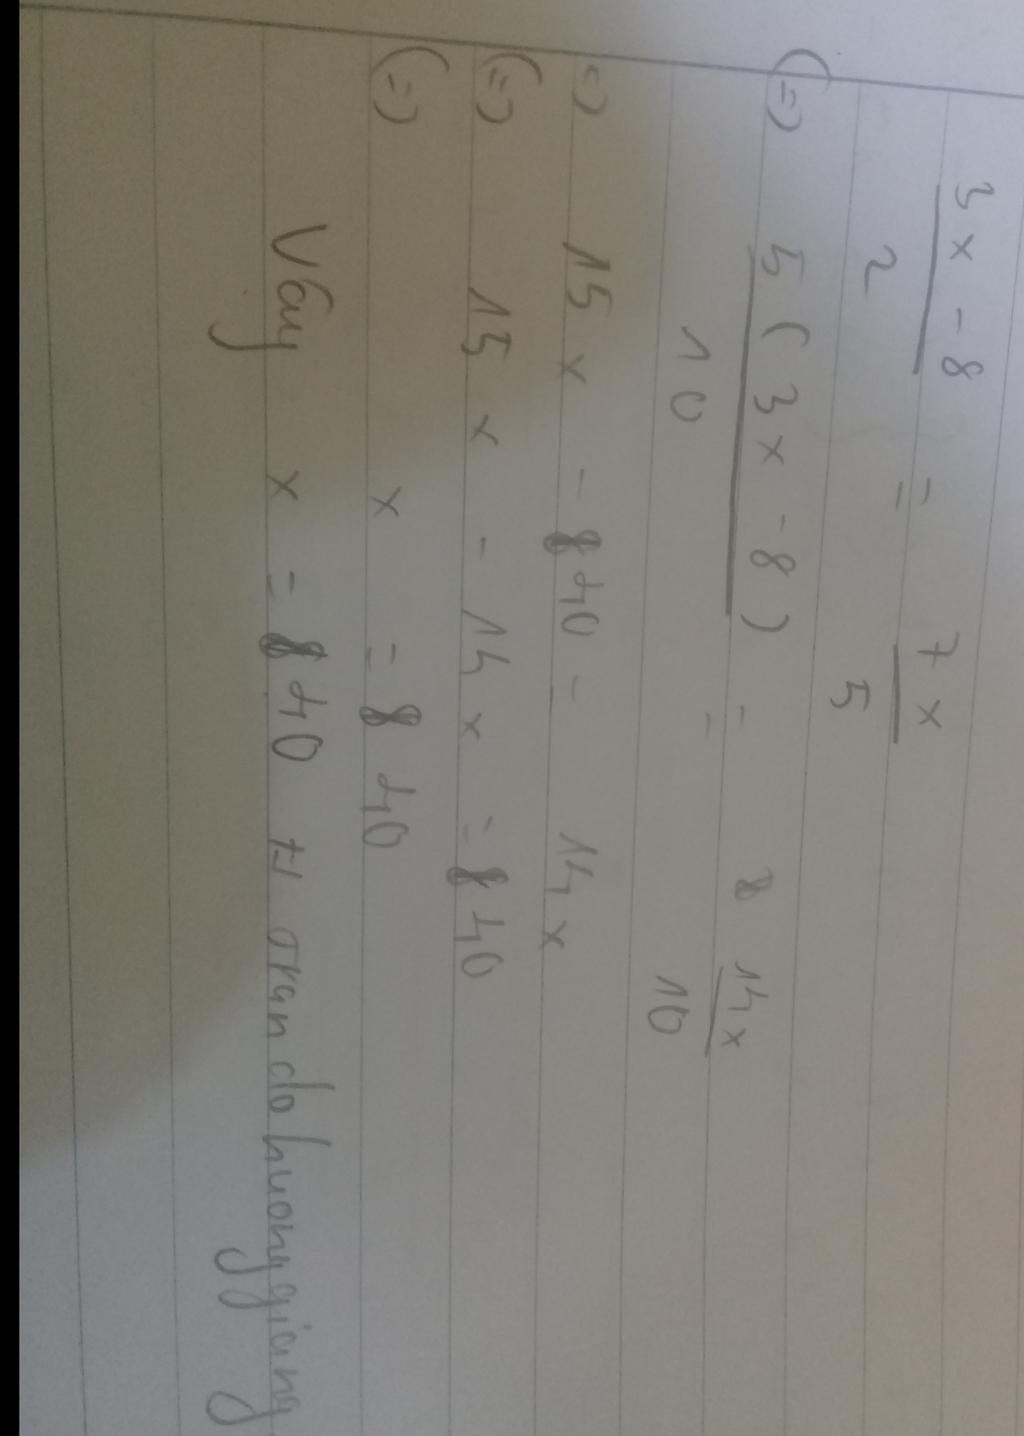 3x - 8 / 2 = 7x / 5
(=) 5(3x - 8) / 10 = 14x / 10
=) 15x - 40 = 14x
(=) 15x - 14x = 40
(=) x = 40
Vậy x = 40 trandohuonggiang